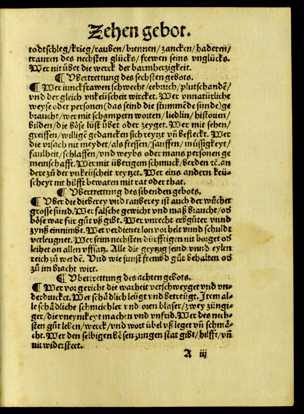 Zehen gebot.
todtschleg/ krieg/ rauben/ brennen/ zancken/ hadern/
trauren des nechsten glücks/ frewen seins vnglücks.
Wer nit über die werck der barmhertzigkeit.
¶ Vbertrettung des sechsten gebots.
Wer junckfrawen schwecht/ eebruch/ blutschande/
vnd der gleich vnkeüscheit wircket. Wer vnnatürliche
weyse oder personen (das seind die stummẽde sünde) ge
braucht/ wer mit schampern wortten/ liedlin/ histotien/
bilden/ die böse lust über oder zeyget. Wer mit sehen/
greiffen/ willige gedancken sich reytzt vñ befleckt. Wer
die vrsach nit meydet/ als fressen/ sauffen/ müssigkeyt/
faulheit/ schlaffen/ vnd weybs oder mans personen ge
meinschafft. Wer mit überigem schmuck/ berden &c. an
dere zů der vnkeüscheit reytzet. Wer eins andern keü-
scheyt nit hilfft bewaren mit rat oder that.
¶ Vbertrettung des sibenden gebots.
Wer die dieberey vnd rauberey ist auch der wücher
grosse sünd. Wer falsche gewicht vnd maß braucht/ od
böse war für gůt vß gibt. Wer vnrecht erbgüter vnnd
zynß einnimbt. Wer verdienet lon vorhelt vnnd schuldt
verleugnet. Wer seim nechsten dürfftigen nit borget od
leihet on allen vffsatz. Alle die geytzig seind vnnd eylen
reich zů werdẽ. Vnd wie sunst frembd gůt behalten od
zů im bracht wirt.
¶ Vbertrettung des achten gebots.
Wer vor gericht die warheit verschweyget vnd vn-
derdrucket. Wer schädlich leügt vnd betreügt. Item al
le schädliche schmeichler vnd oren blaser/ zwey züngi-
ger/ die vneynikeyt machen vnd vnfrid. Wer des nech-
sten gůt leben/ werck/ vnd wort übel vß leget vñ schmä-
cht. Wer den selbigen bösen zungen stat gibt/ hilfft/ vñ
nit widerstreit.
A iij